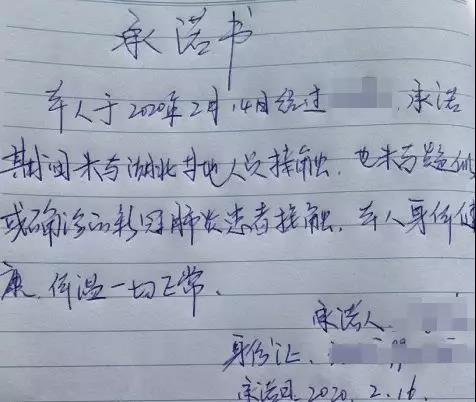 承诺书
本人于2020年2月14日经过 承诺
其时间未与湖北当地人员接触，也未与疑似
或确诊的新冠肺炎患者接触，本人身体健
康，体温一切正常。
承诺人
身份证
承诺日，2020，2.16.